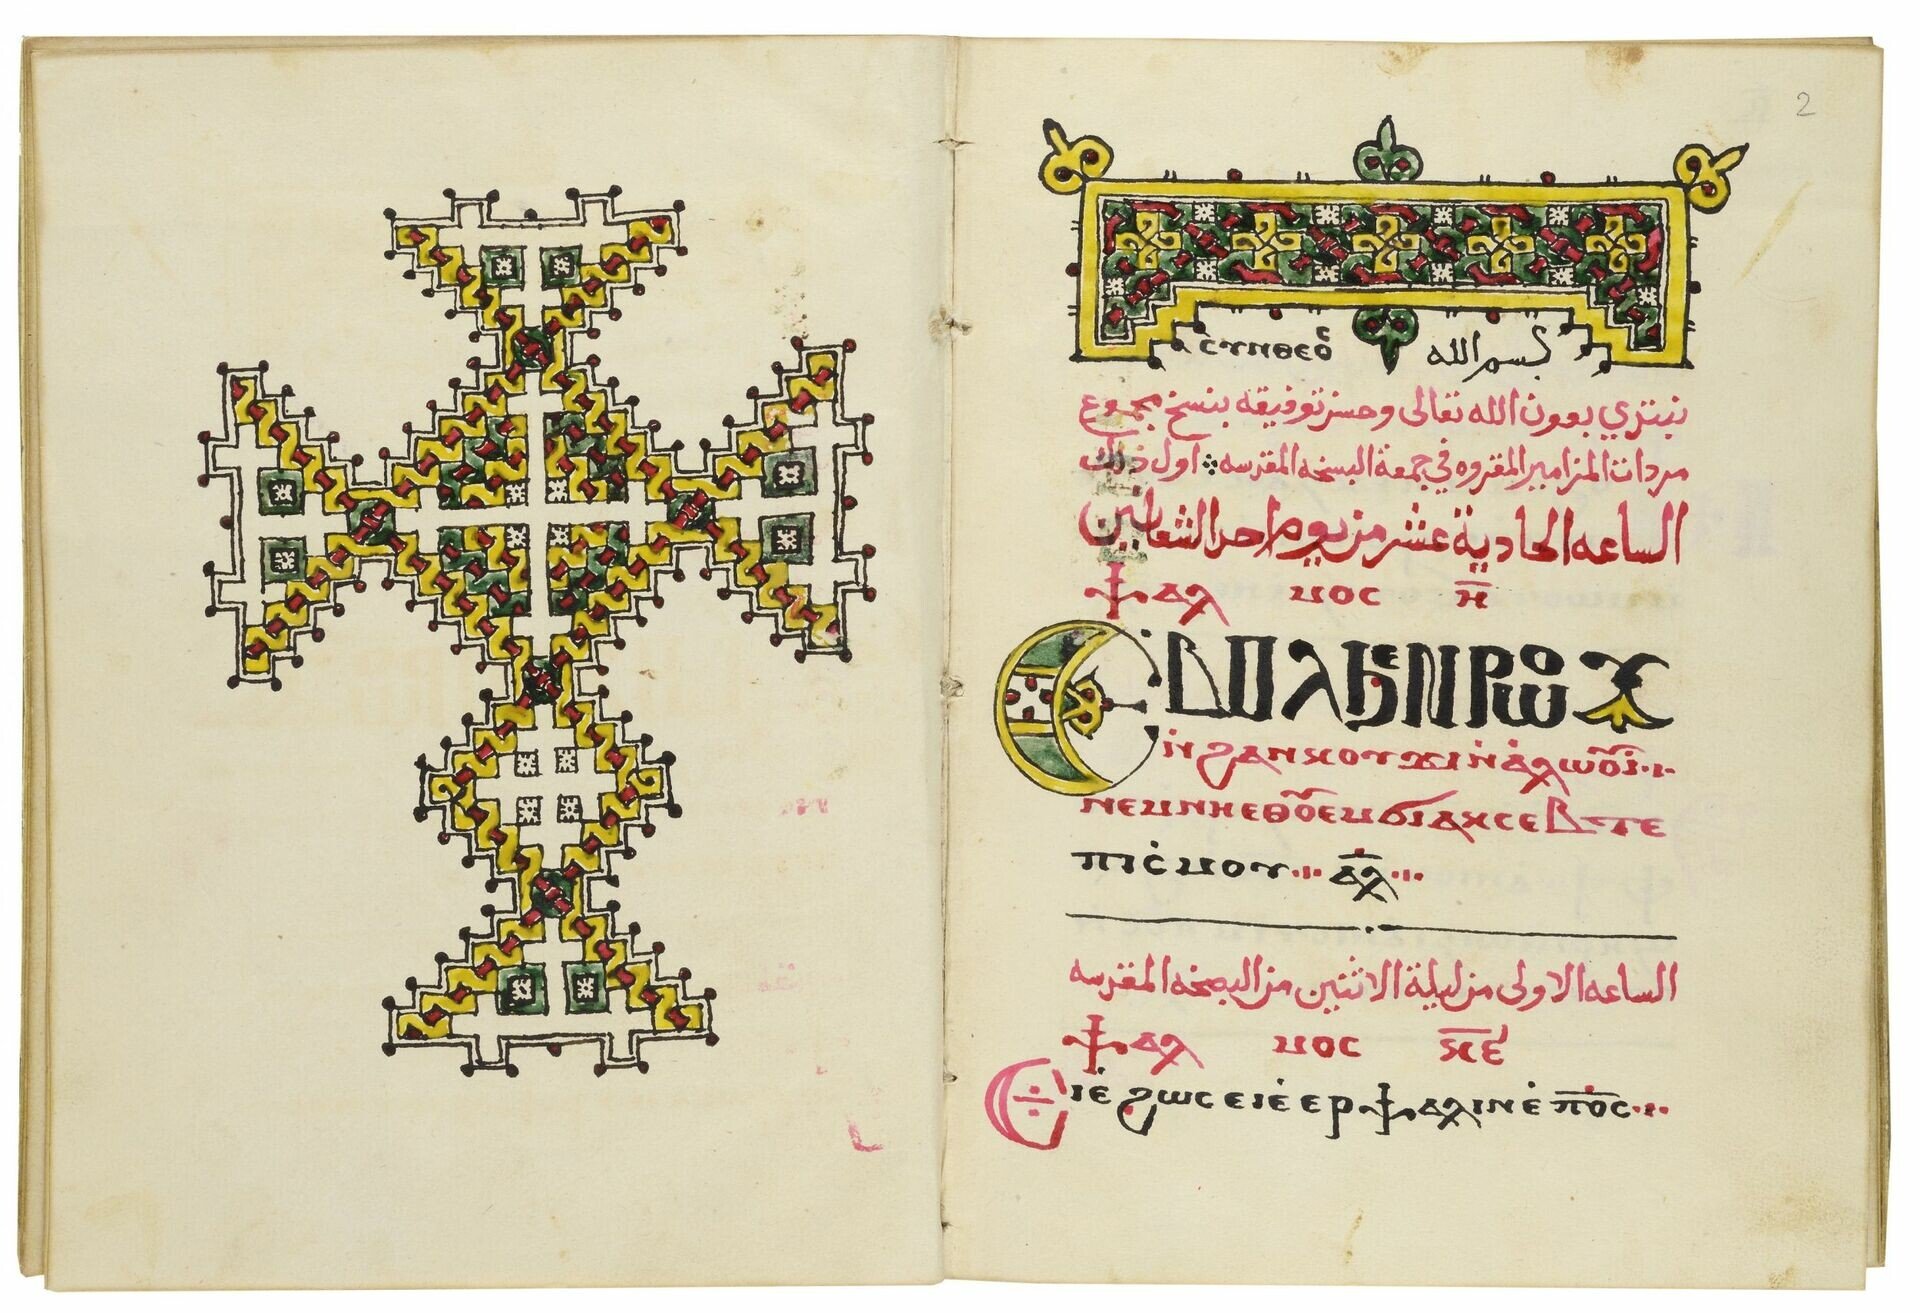 2
ⲥⲩⲛⲑⲉⲟ̅ بسم الله
نبتدي بعون الله تعالى وحسن توفيقه بنسخ مجموع
مردات المزامير المقروه في جمعة البسخه المقدسه اول ذلك
الساعه الحادية عشر من يوم احد الشعانين
ⲯⲁⲗⲙⲟⲥ ⲏ̅
ⲉⲃⲟⲗϧⲉⲛⲣⲱⲟⲩ
ⲛ̀ϩⲁⲛⲕⲟⲩϫⲓ ⲛ̀ⲁⲗⲱⲟⲩⲓ
ⲛⲉⲙⲛⲏⲉⲑⲟⲩⲉⲙϭⲓⲁⲕⲥⲉⲃⲧⲉ
ⲡⲓⲥ̀ⲙⲟⲩ ⲁ̅ⲗ̅
الساعه الاولى من ليلة الاثنين من البصخه المقدسه
ⲯⲁⲗⲙⲟⲥ
ⲉⲓⲉ̀ϩⲱⲥ ⲉⲓⲉ̀ⲉⲣⲯⲁⲗⲓⲛ ⲉ̀ⲡ̅ⲟ̅ⲥ̅